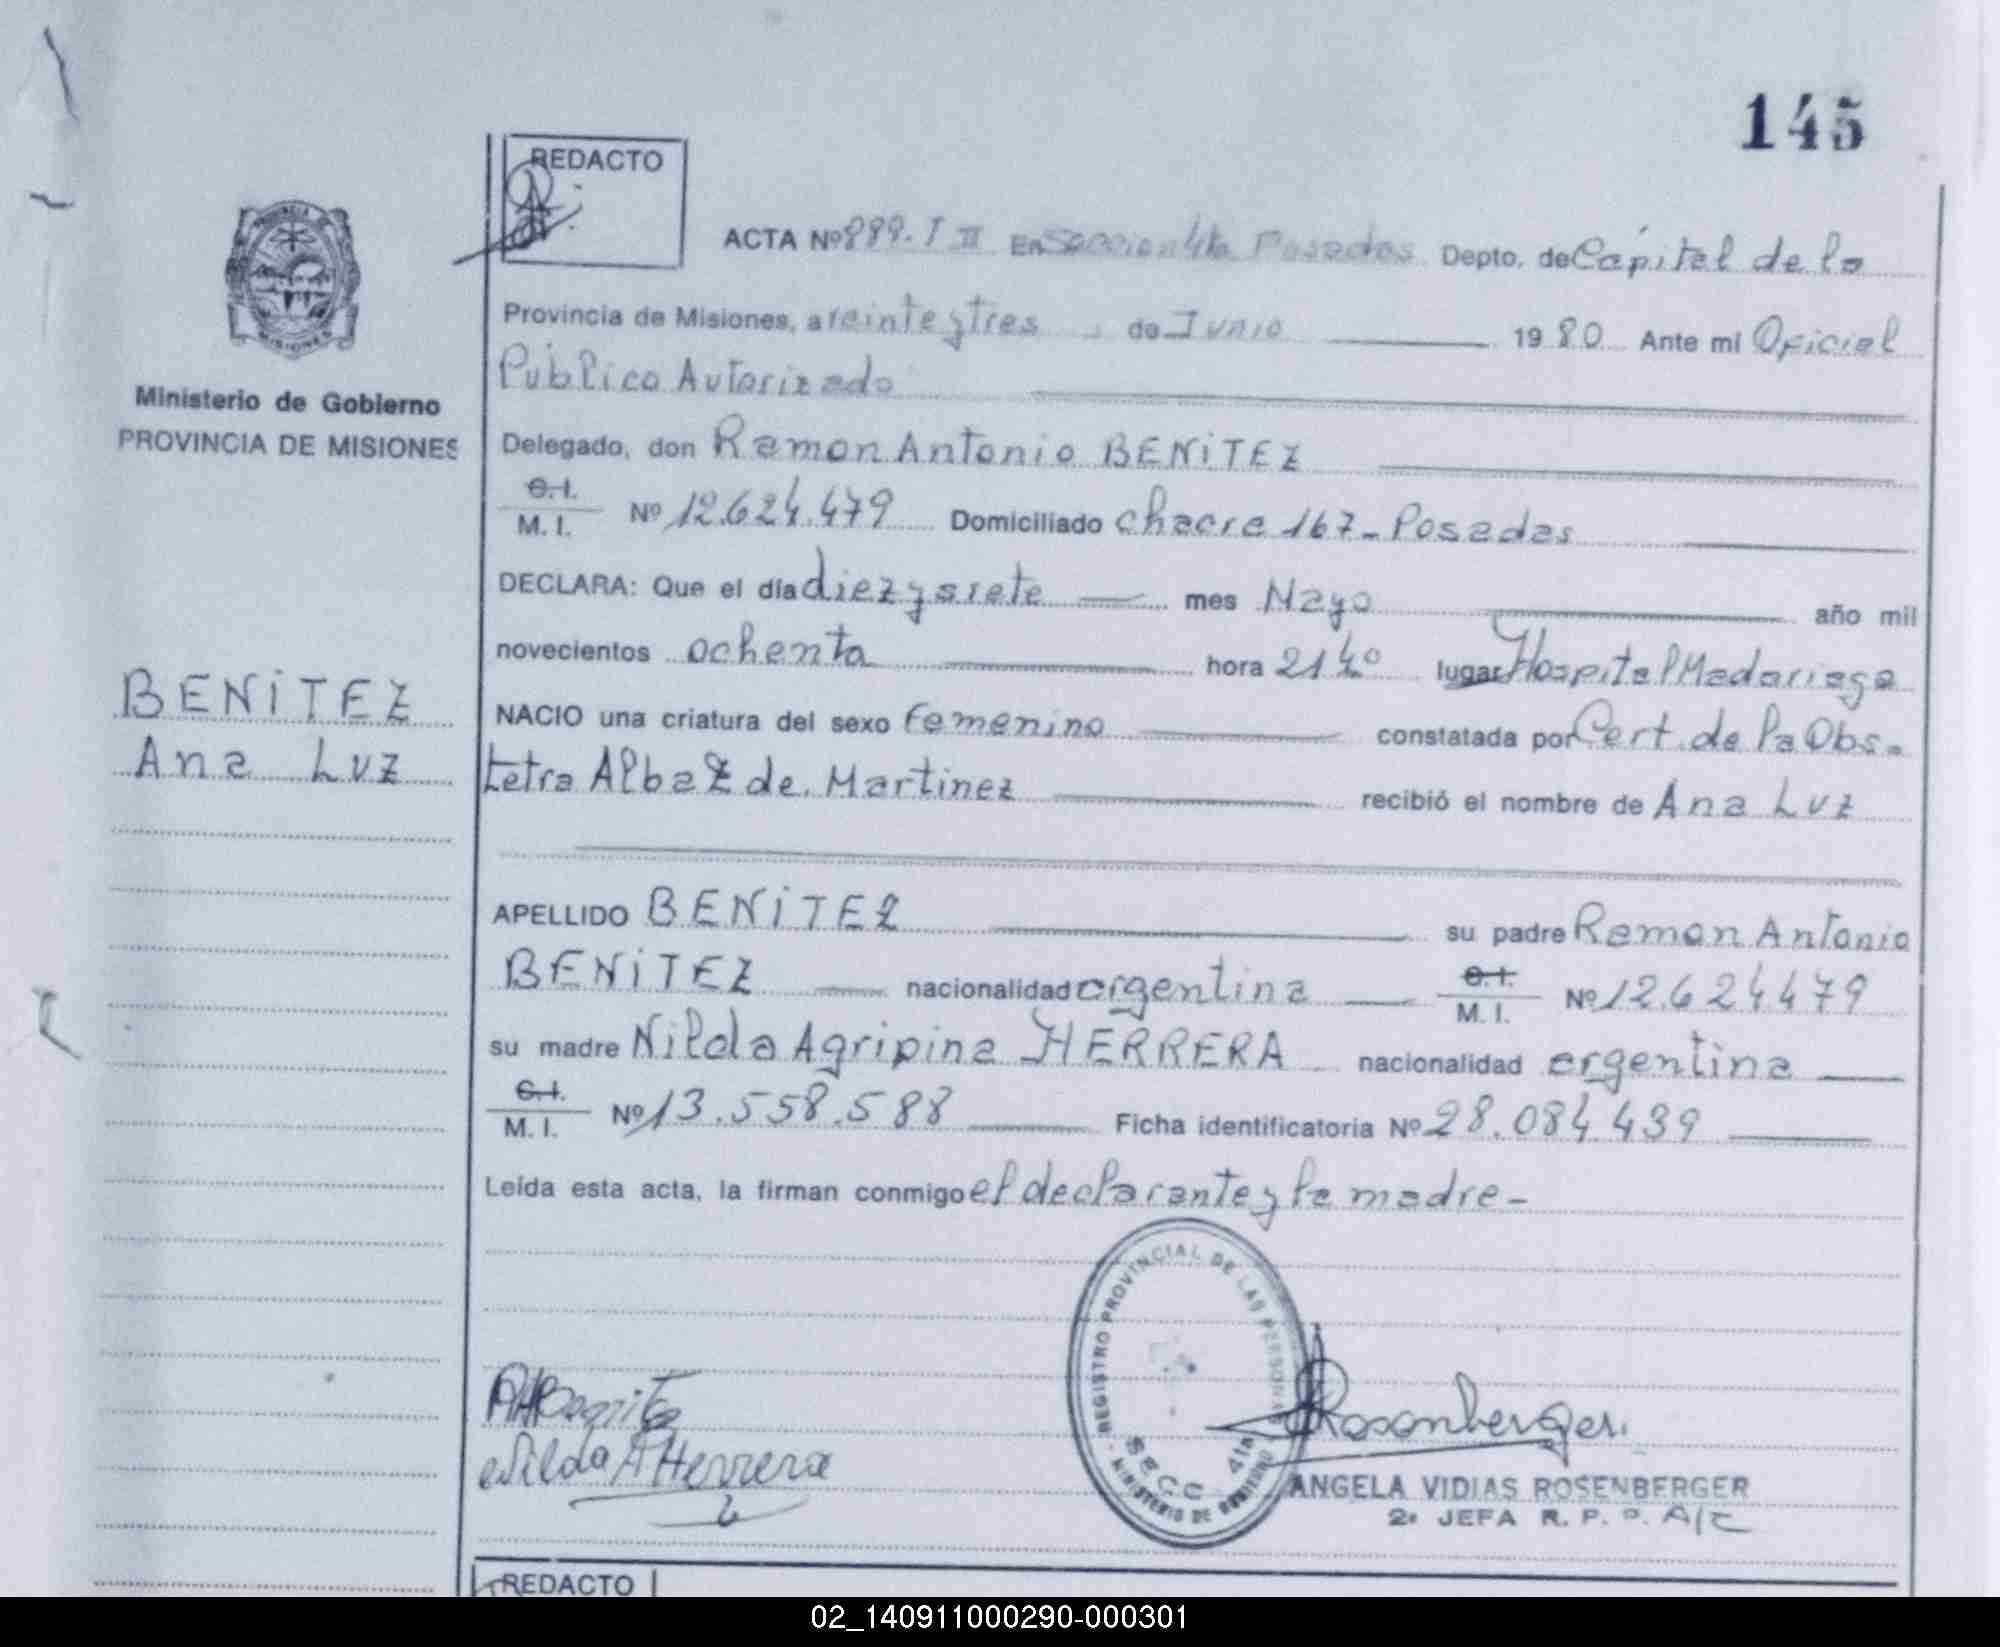 145
REDACTO
ACTA Nº 889. T II En Sección 4ta Posadas Depto. de Cápitel de la
Provincia de Misiones, a veinte y tres de Junio 1980 Ante mi Oficial
Público Autorizado
Ministerio de Gobierno
PROVINCIA DE MISIONES
Delegado, don Ramon Antonio BENITEZ
C.I. M. I. Nº 12.624.479 Domiciliado chacra 167 - Posadas
DECLARA: Que el día diez y siete mes Mayo año mil
novecientos ochenta hora 21 40 lugar Hospital Madariaga
BENITEZ
Ana Luz
NACIO una criatura del sexo femenino constatada por Cert. de la Obs-
tetra Alba Z de Martinez recibió el nombre de Ana Luz
APELLIDO BENITEZ su padre Ramon Antonio
BENITEZ nacionalidad argentina C.I. M. I. Nº 12.624479
su madre Nilda Agripina HERRERA nacionalidad argentina
C.I. M. I. Nº 13.558.588 Ficha identificatoria Nº 28.084439
Leída esta acta, la firman conmigo el declarante y la madre -
REGISTRO PROVINCIAL DE LAS PERSONAS
- MINISTERIO DE GOBIERNO
SECC 4ta
Nilda A Herrera
Rosenberger
ANGELA VIDIAS ROSENBERGER
2ª JEFA R. P. P. A/C
REDACTO
02_140911000290-000301